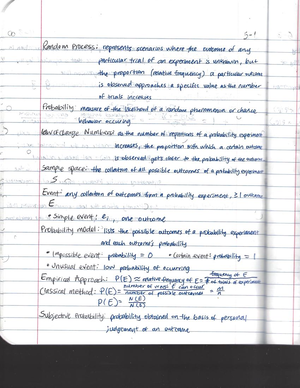 5-1
Random Process: represents scenarios where the outcome of any
particular trial of an experiment is unknown, but
the proportion (relative frequency) a particular outcome
is observed approaches a specific value as the number
of trials increases
Probability: measure of the likelihood of a random phenomenon or chance
behavior occuring
Law of Large Numbers: as the number of repetitions of a probability experiment
increases, the proportion with which a certain outcome
is observed gets closer to the probability of the outcome
Sample space: the collection of all possible outcomes of a probability experiment
S
Event: any collection of outcomes from a probability experiment, ≥1 outcome
E
• Simple event: e, , one outcome
Probability model: lists the possible outcomes of a probability experiment
and each outcome's probability
• Impossible event: probability = 0 • Certain event: probability = 1
• Unusual event: low probability of occurring
Empirical Approach: P(E) ≈ relative frequency of E = frequency of E / # of trials of experiment
Classical method: P(E) = number of ways E can occur / number of possible outcomes = m/n
P(E) = N(E)/N(S)
Subjective Probability: probability obtained on the basis of personal
judgement of an outcome